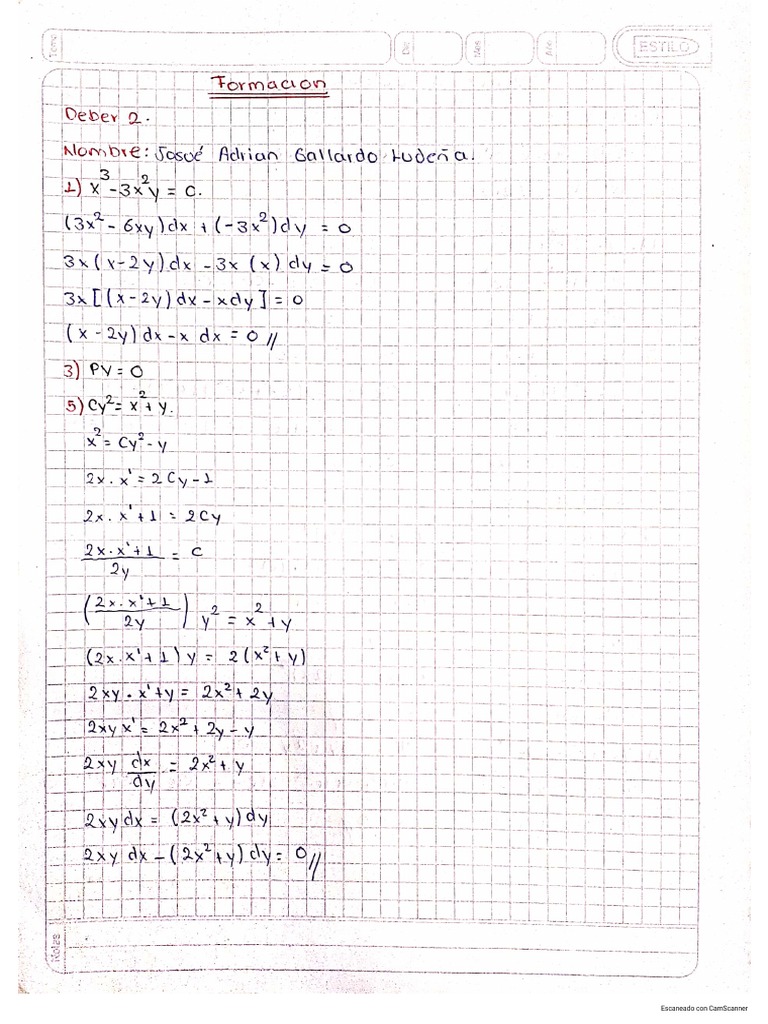 Tema:
Dia
Mes
Año
ESTILO
Formacion
Deber 2.
Nombre: Josué Adrian Gallardo Ludeña.
1) x³ - 3x²y = C.
(3x² - 6xy)dx + (-3x²)dy = 0
3x(x-2y)dx - 3x(x)dy = 0
3x[(x-2y)dx - xdy] = 0
(x-2y)dx - x dx = 0 //
3) PV = 0
5) Cy² = x² + y.
x² = Cy² - y
2x · x' = 2Cy - 1
2x · x' + 1 = 2Cy
(2x · x' + 1)/2y = C
((2x · x' + 1)/2y) y² = x² + y
(2x · x' + 1)y = 2(x² + y)
2xy · x' + y = 2x² + 2y
2xy x' = 2x² + 2y - y
2xy dx/dy = 2x² + y
2xy dx = (2x² + y)dy
2xy dx - (2x² + y)dy = 0 //
Notas
Escaneado con CamScanner